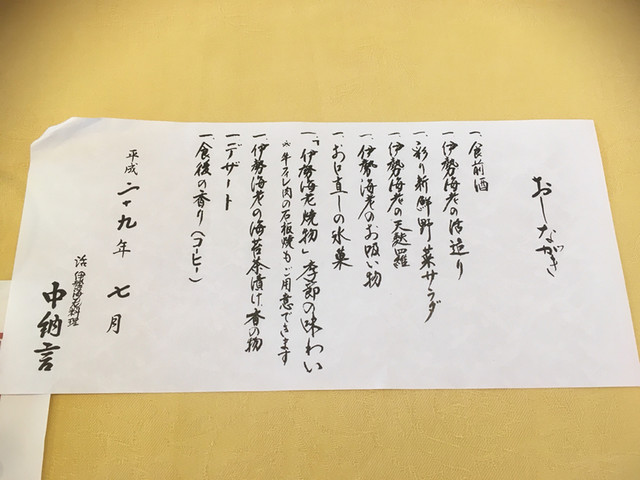 おしながき
一、食前酒
一、伊勢海老の活造り
一、彩り新鮮野菜サラダ
一、伊勢海老の天麩羅
一、伊勢海老のお吸い物
一、お口直しの氷菓
一、「伊勢海老焼物」季節の味わい
※牛ヒレ肉の石板焼もご用意できます
一、伊勢海老の海苔茶漬け、香の物
一、デザート
一、食後の香り(コーヒー)
平成二十九年七月
活伊勢海老料理
中納言